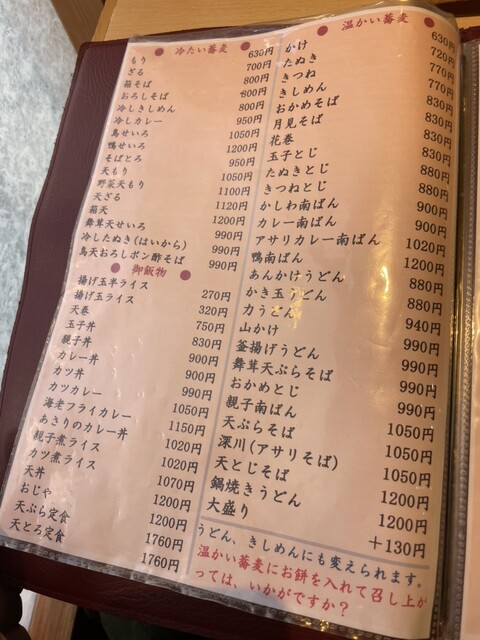 ● 冷たい蕎麦 ●
もり 630円
ざる 700円
箱そば 800円
おろしそば 800円
冷しきしめん 800円
冷しカレー 950円
鳥せいろ 1050円
鴨せいろ 1200円
そばとろ 950円
天もり 1050円
野菜天もり 1100円
天ざる 1120円
箱天 1200円
舞茸天せいろ 990円
冷したぬき(はいから) 990円
鳥天おろしポン酢そば 990円
● 御飯物 ●
揚げ玉半ライス 270円
揚げ玉ライス 320円
天巻 750円
玉子丼 830円
親子丼 900円
カレー丼 900円
カツ丼 990円
カツカレー 1050円
海老フライカレー 1150円
あさりのカレー丼 1020円
親子煮ライス 1020円
カツ煮ライス 1070円
天丼 1200円
おじや 1200円
天ぷら定食 1760円
天とろ定食 1760円
● 温かい蕎麦 ●
かけ 630円
たぬき 720円
きつね 770円
きしめん 770円
おかめそば 830円
月見そば 830円
花巻 830円
玉子とじ 830円
たぬきとじ 880円
きつねとじ 880円
かしわ南ばん 900円
カレー南ばん 900円
アサリカレー南ばん 1020円
鴨南ばん 1200円
あんかけうどん 880円
かき玉うどん 880円
力うどん 940円
山かけ 990円
釜揚げうどん 990円
舞茸天ぷらそば 990円
おかめとじ 990円
親子南ばん 1050円
天ぷらそば 1050円
深川(アサリそば) 1050円
天とじそば 1200円
鍋焼きうどん 1200円
大盛り +130円
うどん、きしめんにも変えられます。
温かい蕎麦にお餅を入れて召し上が
っては、いかがですか？